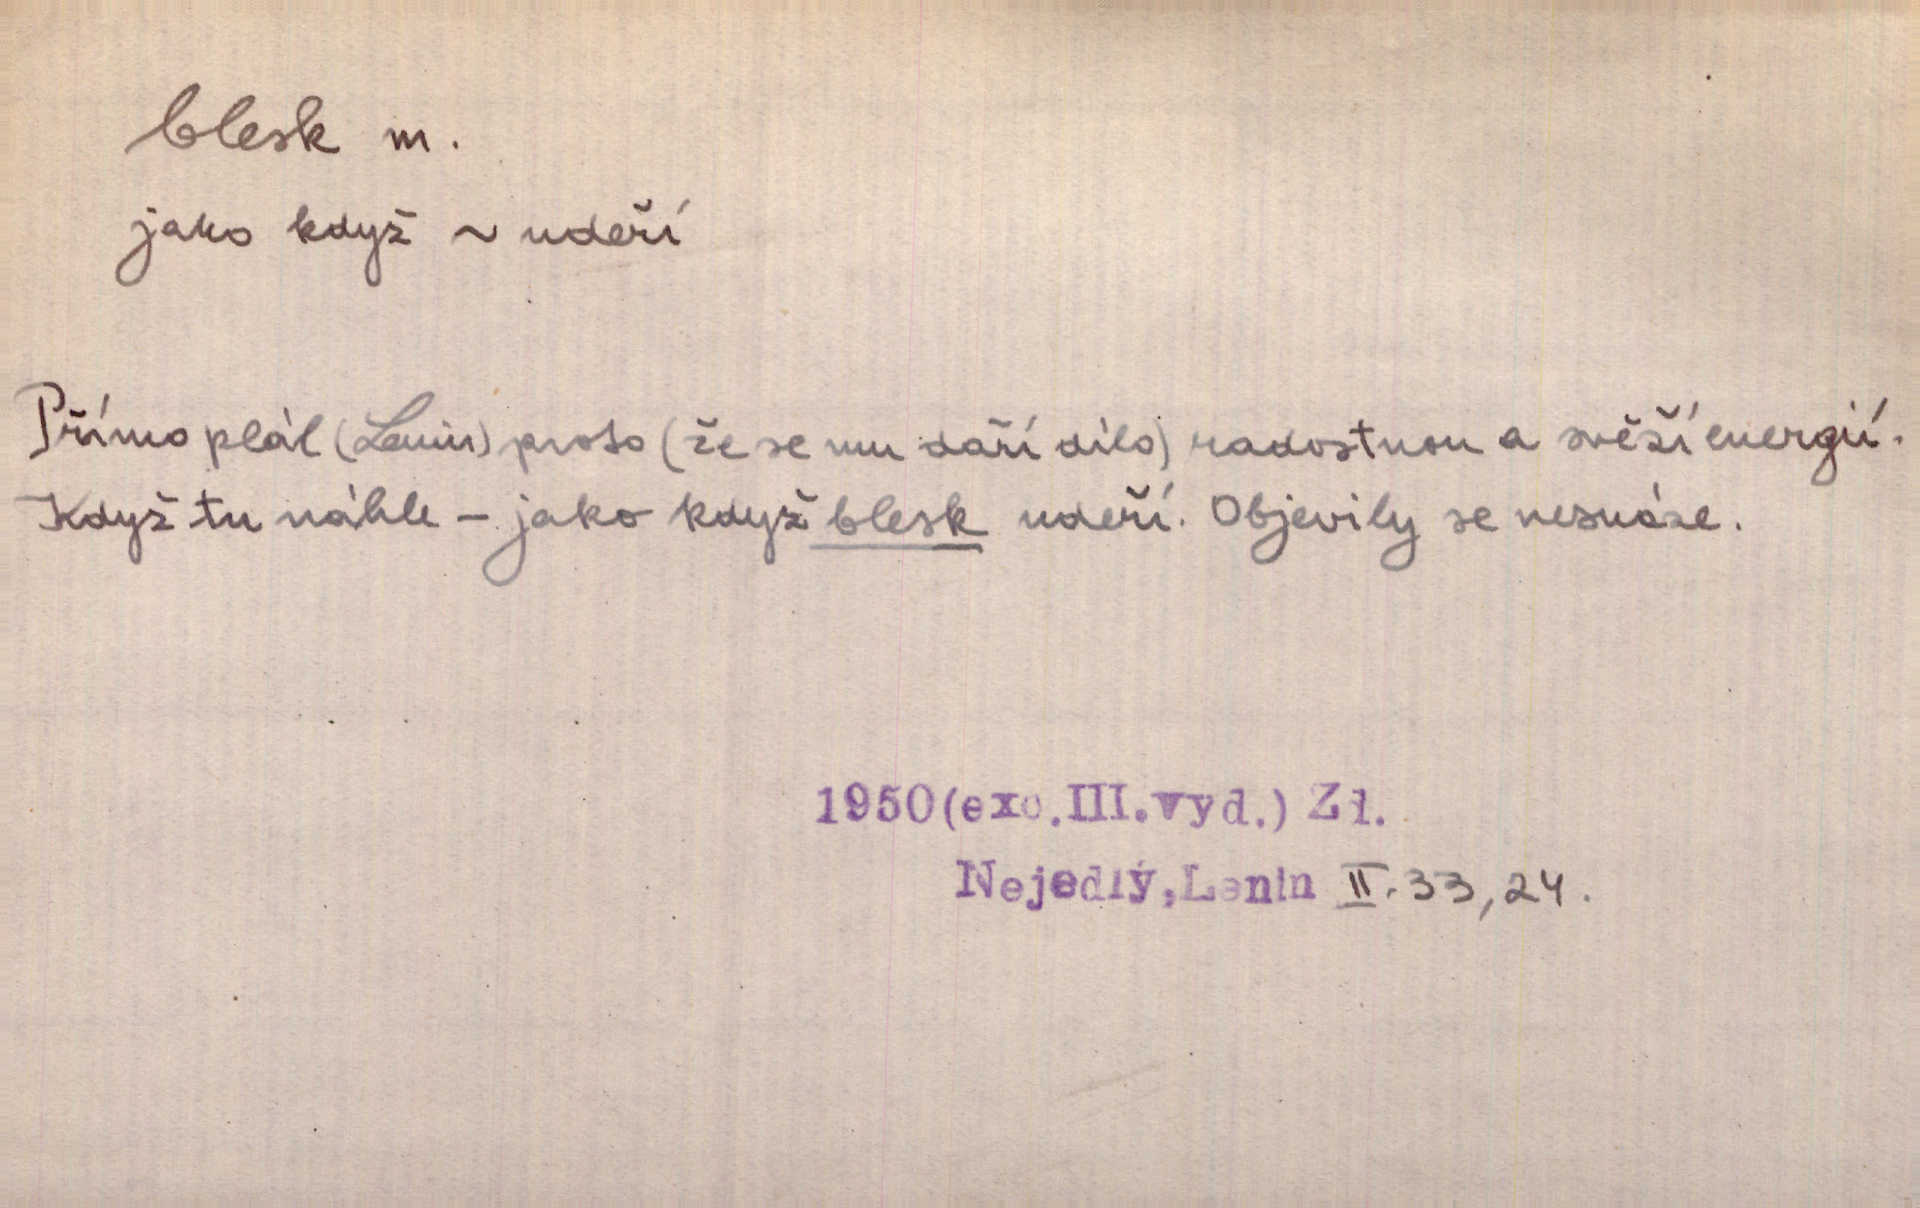 blesk m.
jako když ~ udeří
Přímo plál (Lenin) proto (že se mu daří dílo) radostnou a svěží energií.
Když tu náhle – jako když blesk udeří. Objevily se nesnáze.
1950(exc.III.vyd.) Zd.
Nejedlý,Lenin II. 33, 24.